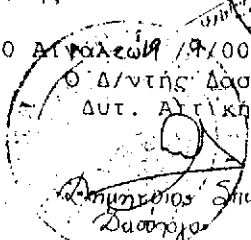 Ο Αιγάλεω 19 /9/00
Ο Δ/ντής Δασ
Δυτ. Αττική
Δημήτριος Σπυ
Δασολόγο